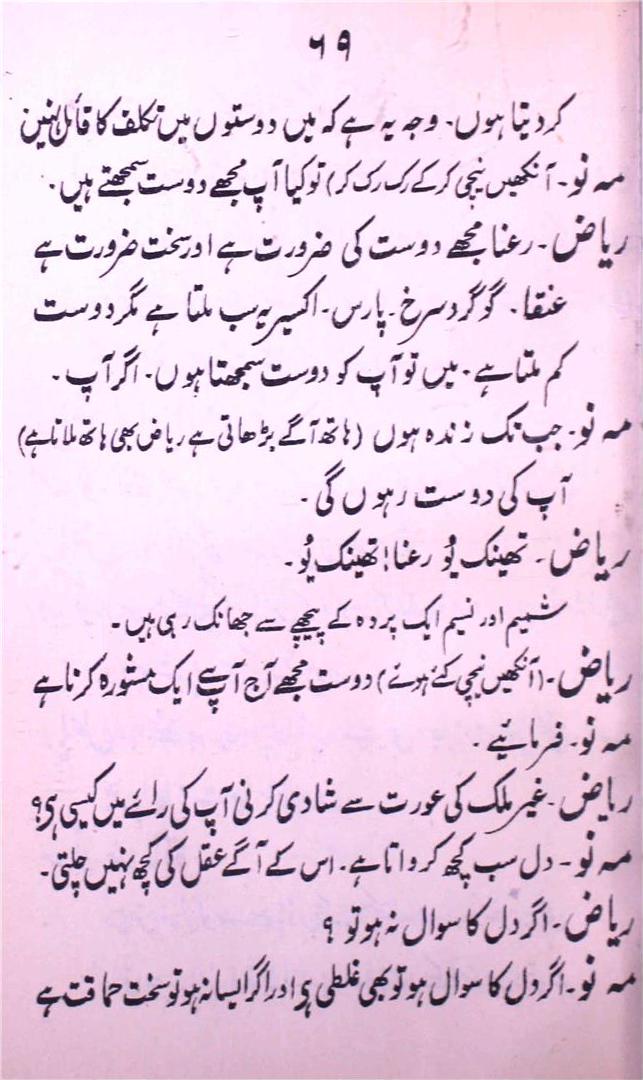 ۶۹
کر دیتا ہوں۔ وجہ یہ ہے کہ میں دوستوں میں تکلف کا قائل نہیں
مہ نو۔ آنکھیں نیچی کر کے رک رک کر) تو کیا آپ مجھے دوست سمجھتے ہیں۔
ریاض۔ رعنا مجھے دوست کی ضرورت ہے اور سخت ضرورت ہے
عنقا۔ گوگرد سرخ۔ پارس۔ اکسیر یہ سب ملتا ہے مگر دوست
کم ملتا ہے۔ میں تو آپ کو دوست سمجھتا ہوں۔ اگر آپ۔
مہ نو۔ جب تک زندہ ہوں (ہاتھ آگے بڑھاتی ہے ریاض بھی ہاتھ ملاتا ہے)
آپ کی دوست رہوں گی۔
ریاض۔ تھینک یُو رعنا! تھینک یُو۔
شمیم اور نسیم ایک پردہ کے پیچھے سے جھانک رہی ہیں۔
ریاض۔ (آنکھیں نیچی کئے ہوئے) دوست مجھے آج آپ سے ایک مشورہ کرنا ہے
مہ نو۔ فرمائیے۔
ریاض۔ غیر ملک کی عورت سے شادی کرنی آپ کی رائے میں کیسی ہی؟
مہ نو۔ دل سب کچھ کرواتا ہے۔ اس کے آگے عقل کی کچھ نہیں چلتی۔
ریاض۔ اگر دل کا سوال نہ ہو تو ؟
مہ نو۔ اگر دل کا سوال ہو تو بھی غلطی ہی اور اگر ایسا نہ ہو تو سخت حماقت ہے